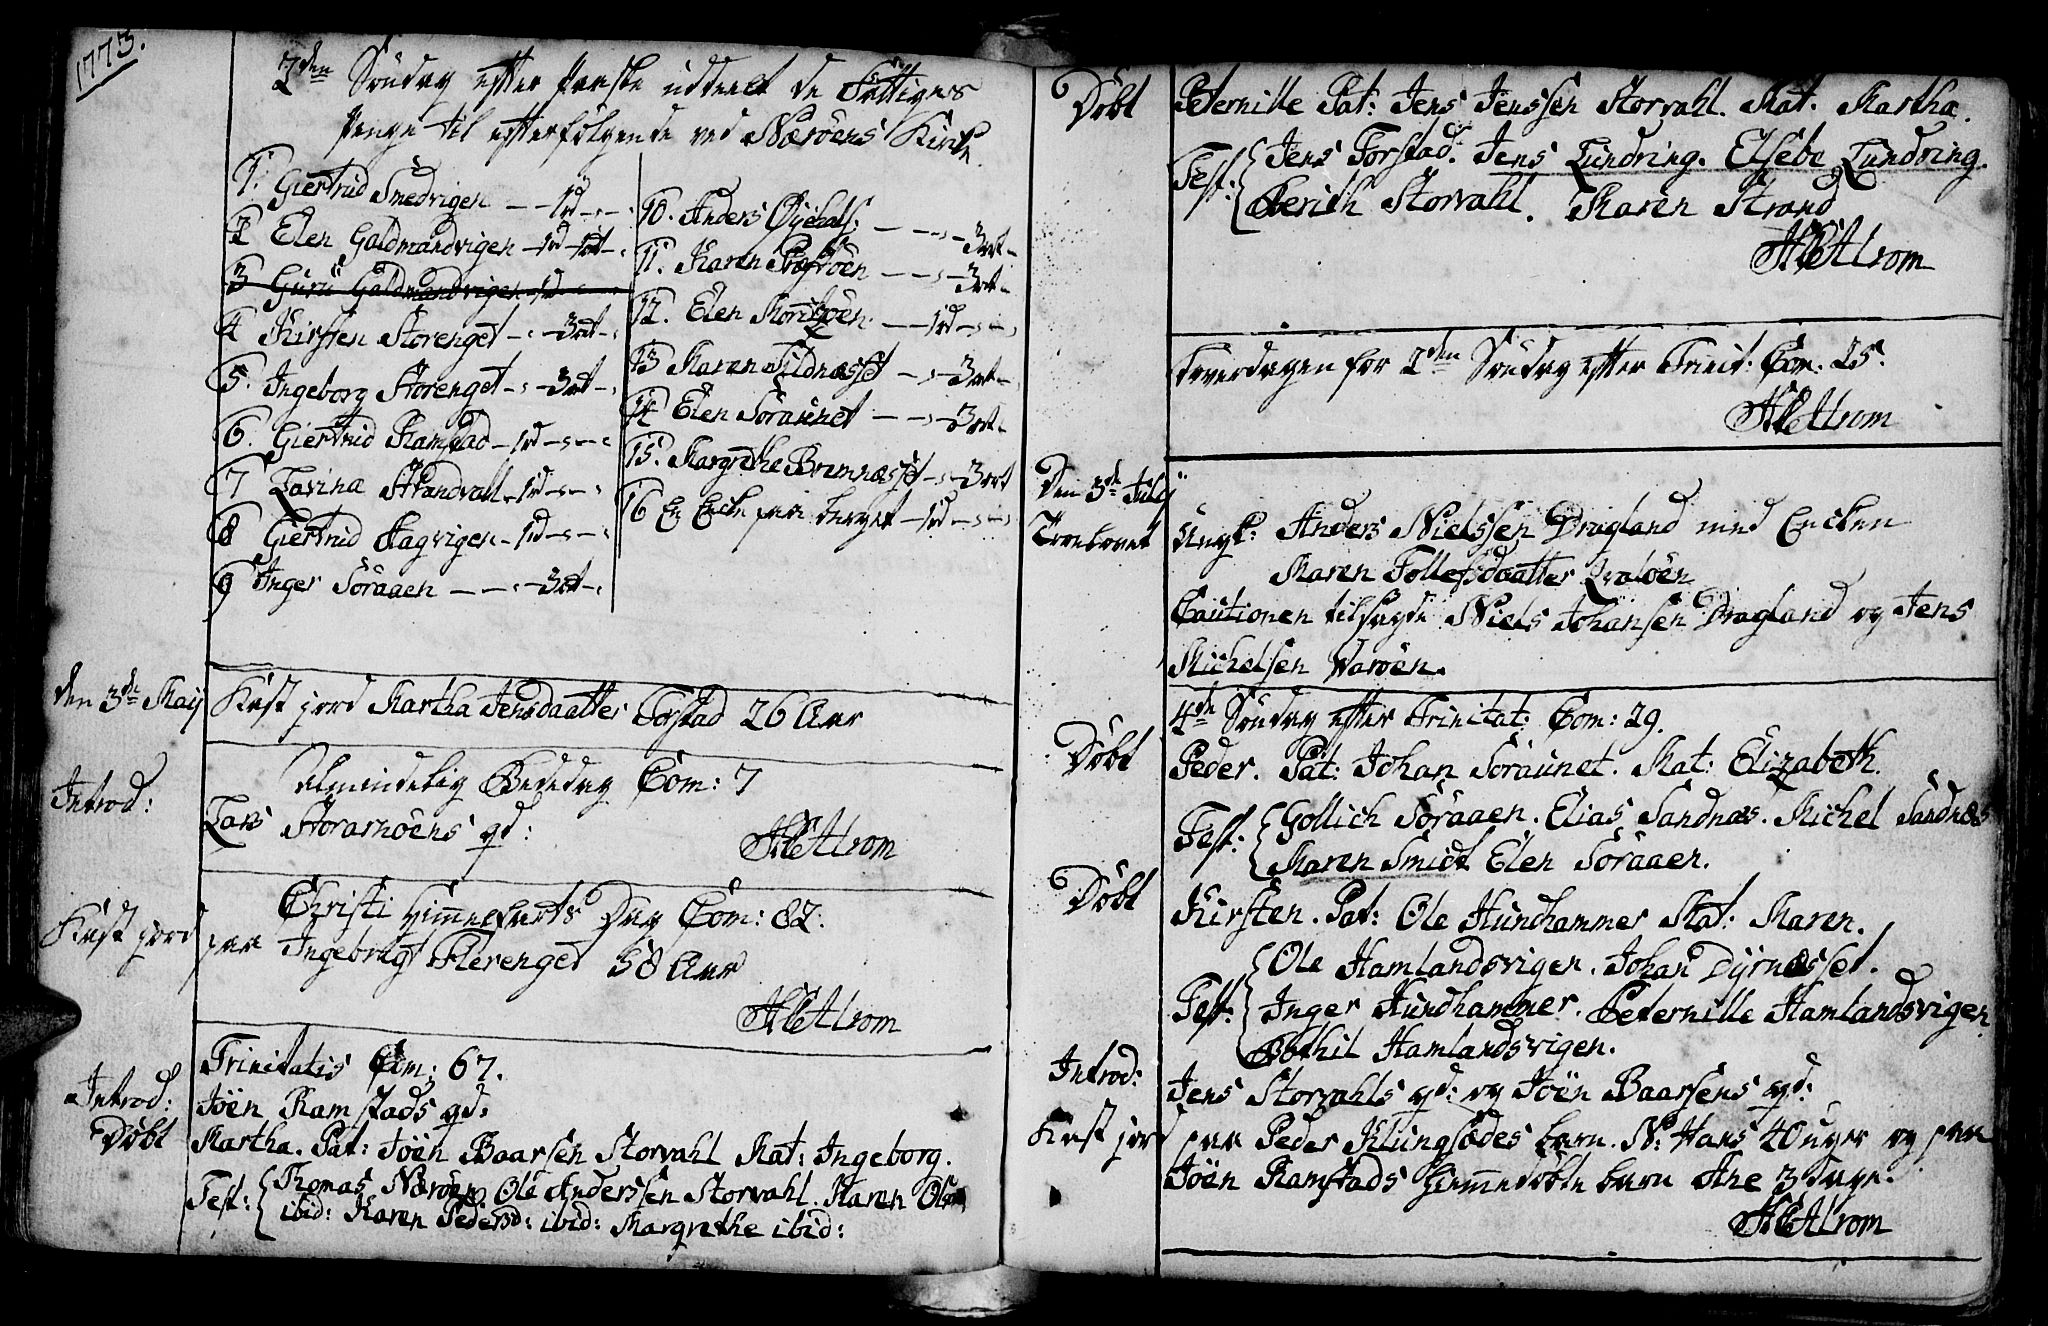 1773.
2den Søndag efter Paaske uddeelt de Fattiges
Penge til efterfølgende ved Nærøens Kirke.
1. Giertrud Smedvigen — 1rd
2 Elen Galdmandvigen 1rd 1ort
3 Guru Galdmandvigen 1rd
4 Kirsten Storenget — 3ort
5. Ingeborg Storenget — 3ort
6. Giertrud Ramstad — 1rd
7 Lavina Strandvall — 1rd
8 Giertrud Aagvigen — 1rd
9 Inger Søraaen — 3ort
10. Anders Øyehals: — 3ort
11. Karen — 3ort
12. Elen — 1rd
13 Karen Tildnæsset — 3ort
14 Elen Søraunet — 3ort
15. Margrethe Bremnæsset — 3ort
16 En Enke paa Berget — 1rd
den 3de May Kast jord Martha Jensdaatter Forstad 26 Aar
Almindelig Bededag Com: 7
Introd: Lars Storarnøens qd:
HCAlrom
Christi Himmelfarts Dag Com: 82.
Kast jord paa Ingebrigt Flerenget 58 Aar
HCAlrom
Trinitatis Com: 67.
Introd: Joen Ramstads qd:
Døbt Martha. Pat: Joen Baarsen Storvahl Mat: Ingeborg.
Test: Thomas Nærøen. Ole Anderssen Storvahl. Karen Olsd
ibid: Karen Pedersd: ibid: Margrethe ibid:
Døbt Peternille Pat: Jens Jenssen Storvahl. Mat: Martha.
Test: Jens Forstad. Jens Lundring. Elsebe Lundring.
Berith Storvahl. Maren Strand
HCAlrom
Løverdagen for 2den Søndag efter Trinit: Com: 25.
HCAlrom
Den 3de July
Trolovet Ungk: Anders Nielssen Dragland med Enken
Maren Tollefsdaatter Qvaløen
Cautionen tilsagde Niels Johansen Dragland og Jens
Michelsen Varøen.
4de Søndag efter Trinitat: Com: 29.
Døbt Peder. Pat: Johan Søraunet. Mat: Elizabeth.
Test: Gollich Søraaen. Elias Sandnæs. Michel Sandnæs
Maren Smidt Elen Søraaen.
Døbt Kirsten. Pat: Ole Hundhammer Mat: Maren.
Ole Hamlandsvigen. Johan Dyrnæsset.
Test: Inger Hundhammer. Peternille Hamlandsvigen
Bothil Hamlandsvigen.
Introd: Jens Storvahls qd: og Joen Baarsens qd:
Kast jord paa Peder Klungsødes barn. N: Hans 40 uger og paa
Joen Ramstads hiemmedøbte barn Ane 3 dage.
HCAlrom